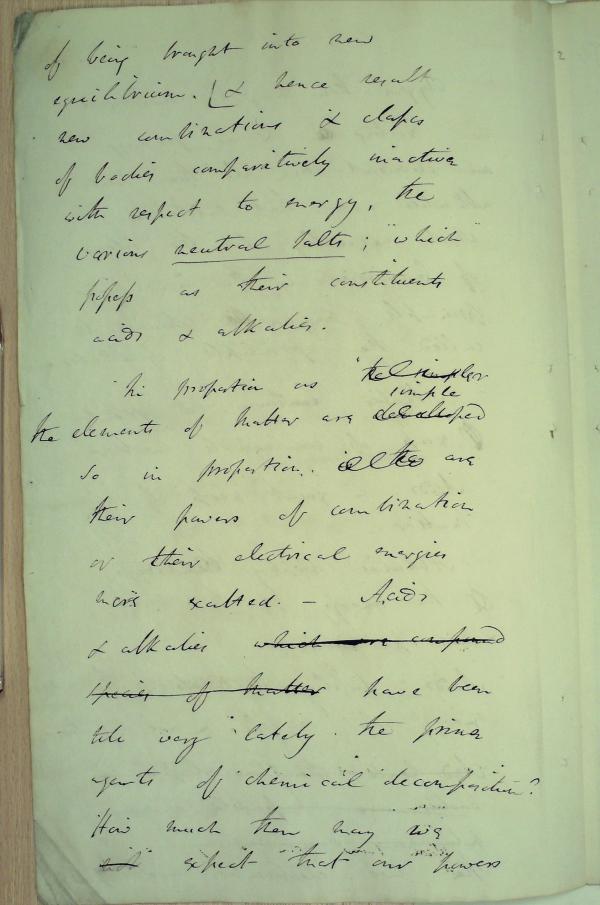 of being brought into new
equilibrium. [& hence result
new combinations & classes
of bodies comparitively inactive
with respect to energy, the
various neutral salts; which
possess as their constituents
acids & alkalies.
In proportion as the simpler
simple
the elements of matter are developed
so in proportion. are
their powers of combination
or their electrical energies
more exalted. — Acids
& alkalies which are compound
species of matter have been
till very lately the prime
agents of chemical decomposition?
How much then may we
not expect that our powers